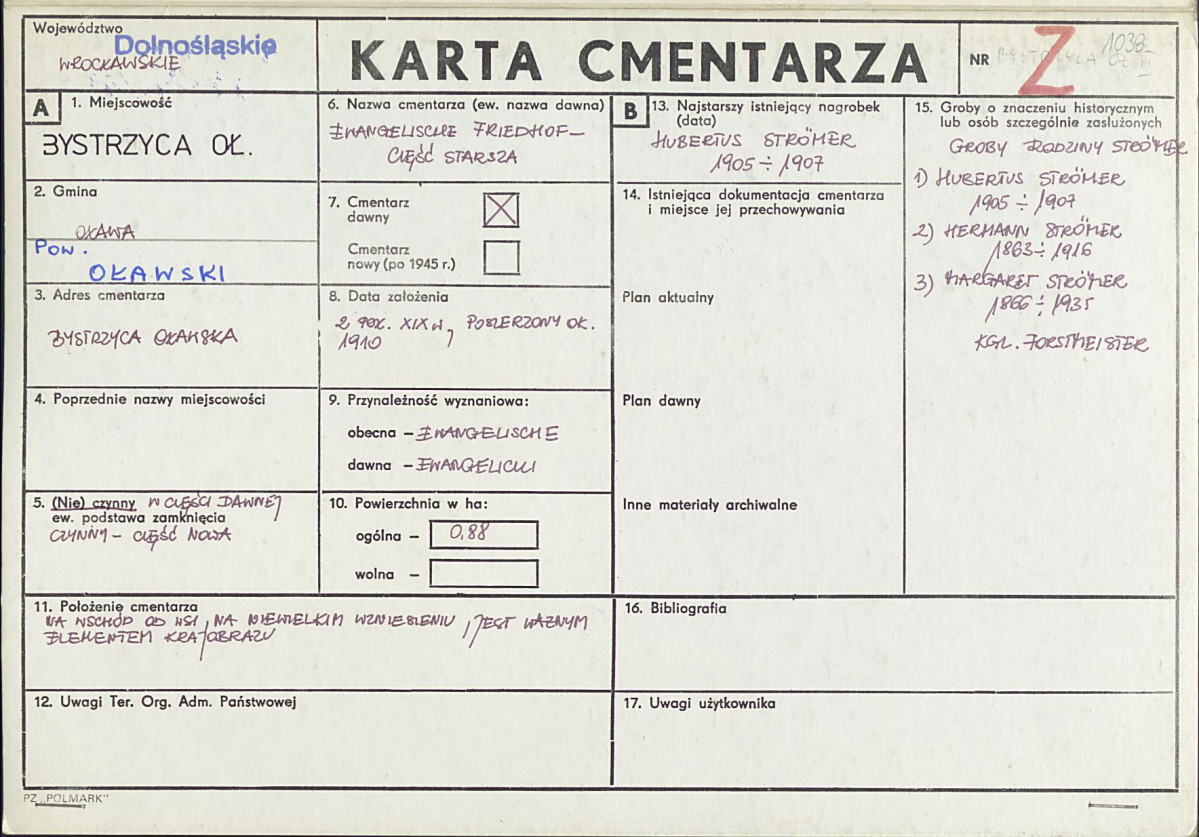 Województwo
Dolnośląskie
WROCŁAWSKIE
KARTA CMENTARZA
NR
Z
1038
BYSTRZYCA OŁ.
A
1. Miejscowość
BYSTRZYCA OŁ.
2. Gmina
OŁAWA
POW.
OŁAWSKI
3. Adres cmentarza
BYSTRZYCA OŁAWSKA
4. Poprzednie nazwy miejscowości
5. (Nie) czynny W CZĘŚCI DAWNEJ
ew. podstawa zamknięcia
CZYNNY – CZĘŚĆ NOWA
6. Nazwa cmentarza (ew. nazwa dawna)
EWANGELISCHE FRIEDHOF –
CZĘŚĆ STARSZA
7. Cmentarz
dawny
Cmentarz
nowy (po 1945 r.)
8. Data założenia
2 POŁ. XIX W, POSZERZONY OK.
1910
9. Przynależność wyznaniowa:
obecna – EWANGELISCHE
dawna – EWANGELICKI
10. Powierzchnia w ha:
ogólna – 0,88
wolna –
11. Położenie cmentarza
NA WSCHÓD OD WSI, NA NIEWIELKIM WZNIESIENIU, JEST WAŻNYM
ELEMENTEM KRAJOBRAZU
12. Uwagi Ter. Org. Adm. Państwowej
B
13. Najstarszy istniejący nagrobek
(data)
HUBERTUS STRÖMER
1905 ÷ 1907
14. Istniejąca dokumentacja cmentarza
i miejsce jej przechowywania
Plan aktualny
Plan dawny
Inne materiały archiwalne
15. Groby o znaczeniu historycznym
lub osób szczególnie zasłużonych
GROBY RODZINY STRÖMER
1) HUBERTUS STRÖMER
1905 ÷ 1907
2) HERMANN STRÖMER
1863 ÷ 1916
3) MARGARET STRÖMER
1866 ÷ 1935
KGL. FORSTMEISTER
16. Bibliografia
17. Uwagi użytkownika
PZ „POLMARK"